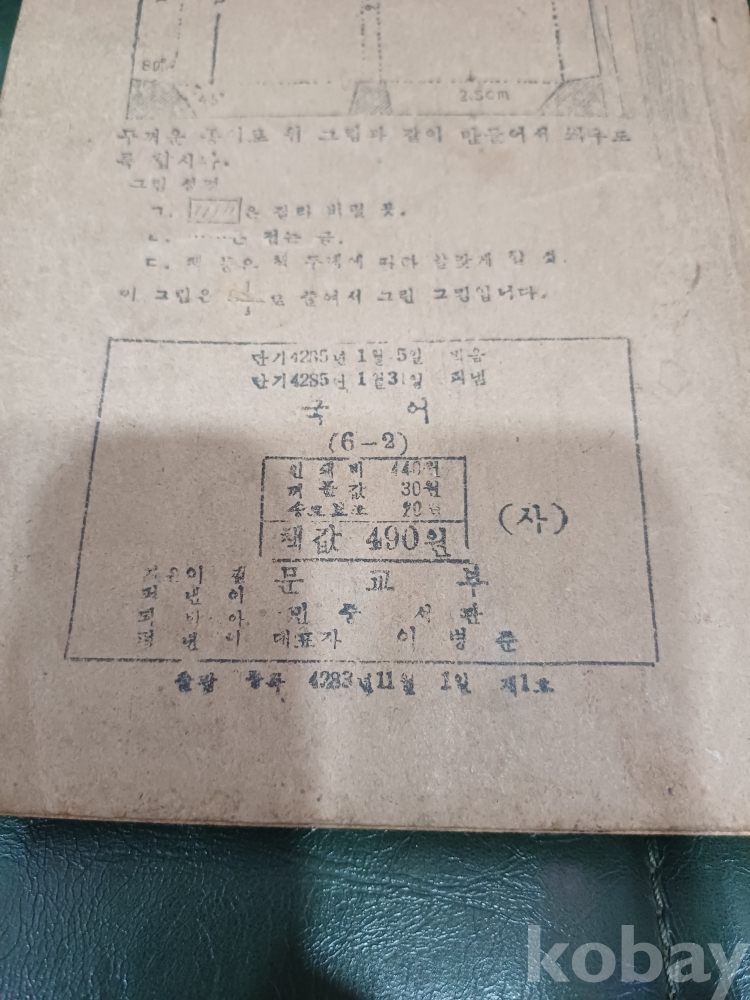 80°
45°
2.5cm
두꺼운 종이로 위 그림과 같이 만들어서 씌우도
록 합시다.
그림 설명
ㄱ. 은 잘라 버릴 곳.
ㄴ. ……은 접는 금.
ㄷ. 책 등은 책 두께에 따라 알맞게 할 것.
이 그림은 줄여서 그린 그림입니다.
단기 4285년 1월 5일 박음
단기 4285년 1월 31일 펴냄
국 어
(6-2)
인쇄비 440원
꺼풀값 30원
20원
책값 490원
(사)
지은이 문 교 부
펴낸이
민중서관
펴낸이 대표자 이 병 준
출판 등록 4283년 11월 1일 제1호
kobay